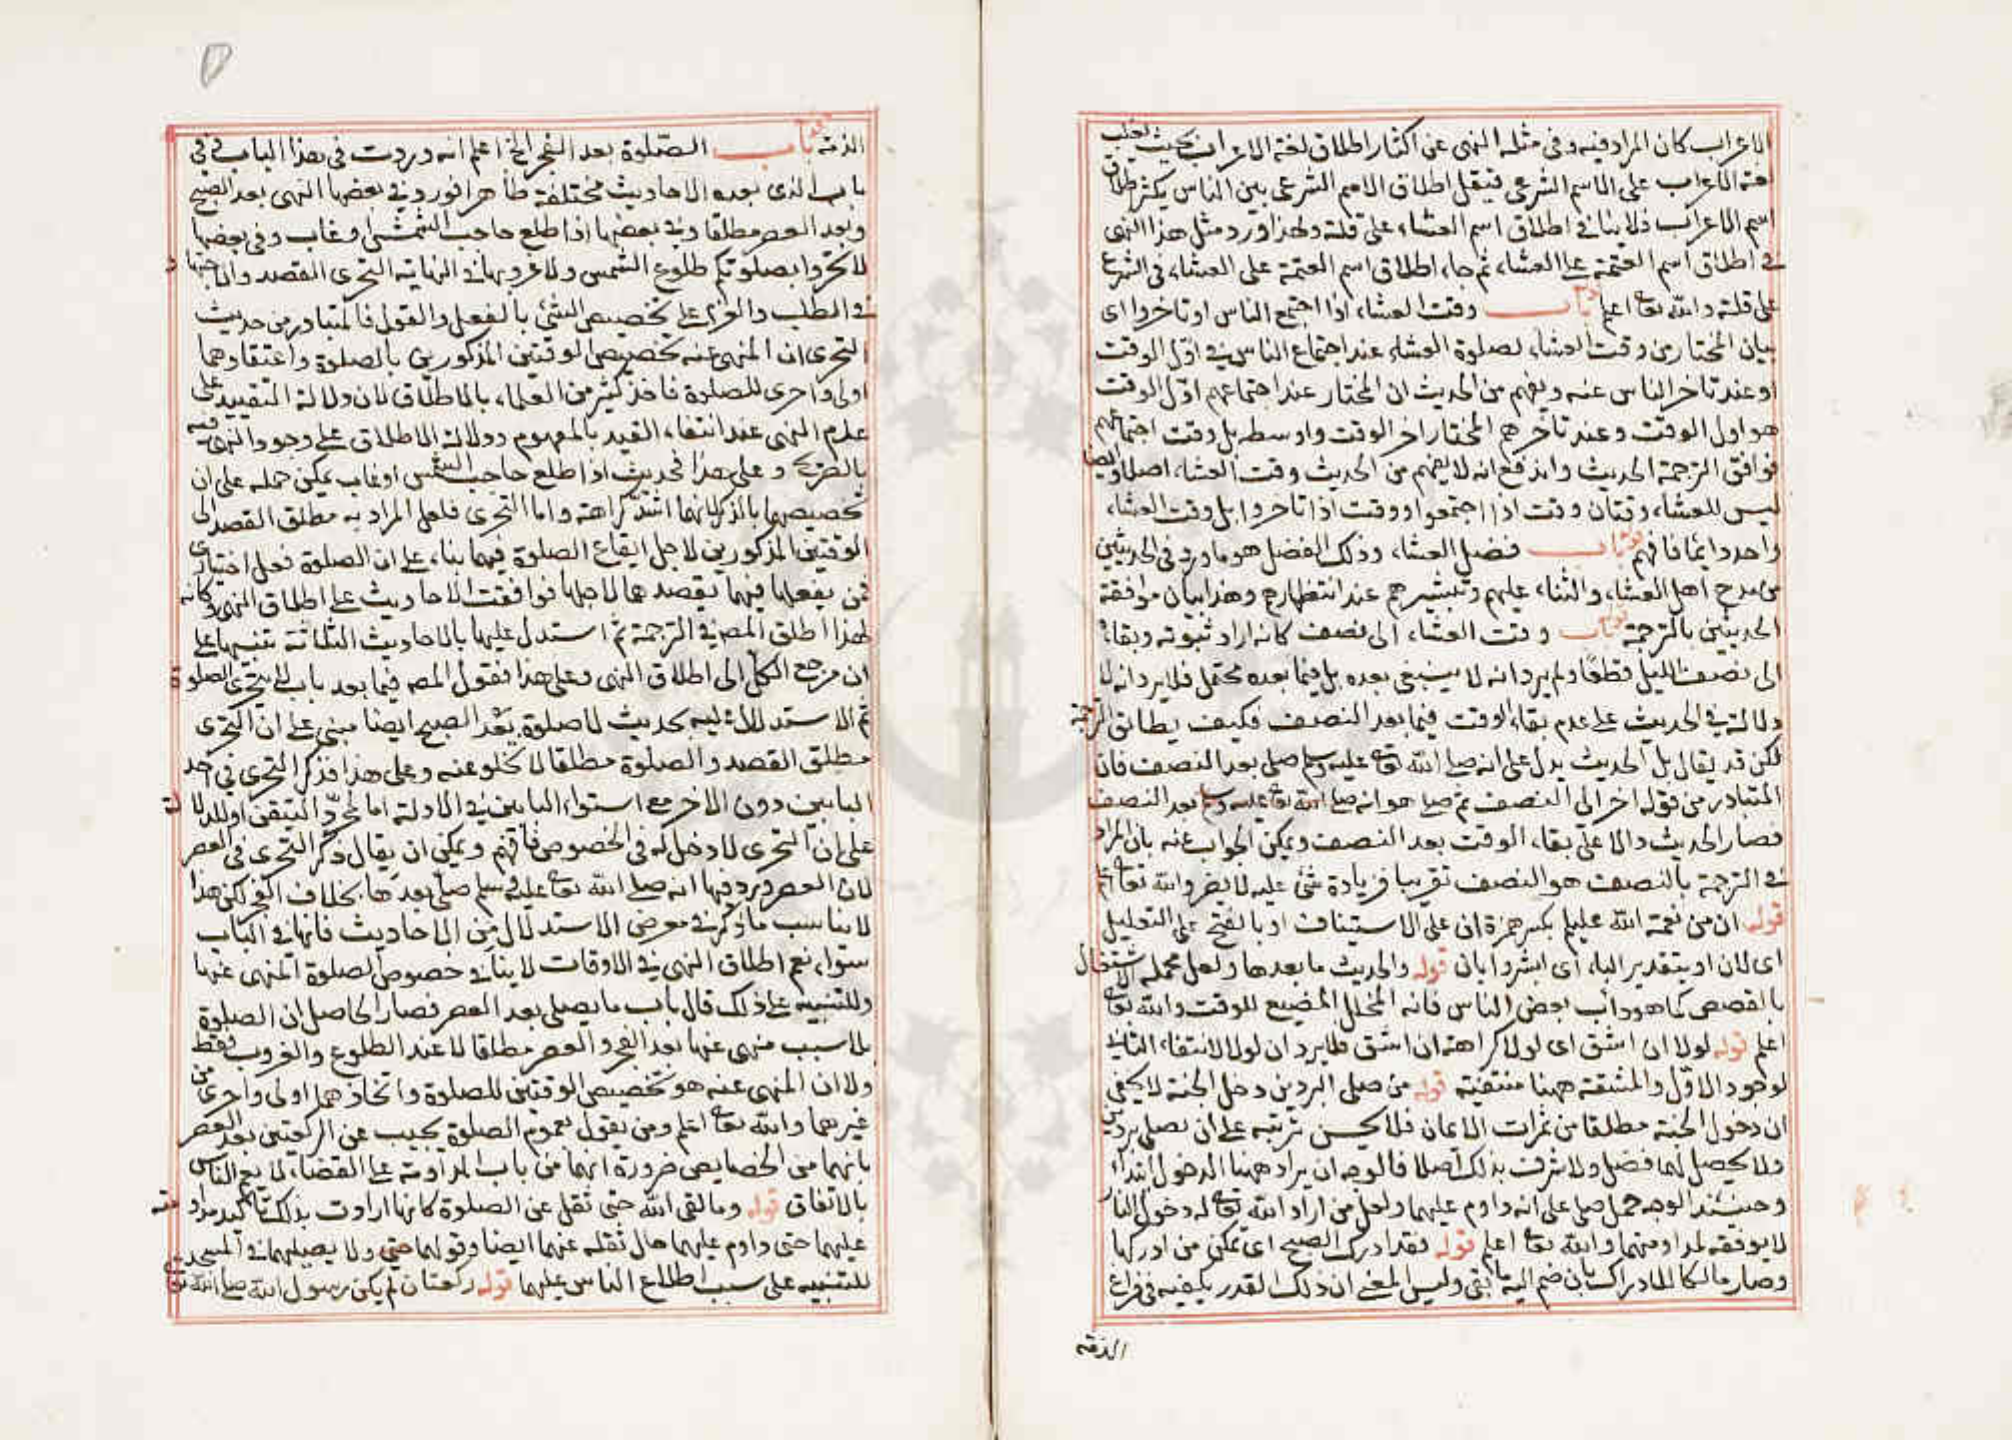 الاعراب كان المراد فيه وفى مثله النهى عن اكثار اطلاق لغة الاعراب بحيث تغلب
لغة الاعراب على الاسم الشرعى فيقل اطلاق الاسم الشرعى بين الناس يكثر اطلاق
اسم الاعراب فلا ينافى اطلاق اسم العشاء على قلة ولهذا ورد مثل هذا النهى
فى اطلاق اسم العتمة على العشاء ثم جاء اطلاق اسم العتمة على العشاء فى الشرع
على قلة والله تعا اعلم باب وقت العشاء اذا اجتمع الناس او تاخروا اى
بيان المختار من وقت العشاء لصلوة العشاء عند اجتماع الناس فى اول الوقت
او عند تاخر الناس عنه ويفهم من الحديث ان المختار عند اجتماعهم اول الوقت
هو اول الوقت وعند تأخرهم المختار اخر الوقت واوسطه بل وقت اجتماعهم
فوافق الترجمة الحديث واندفع انه لا يفهم من الحديث وقت العشاء اصلا وايضا
ليس للعشاء وقتان وقت اذا اجتمعوا ووقت اذا تاخروا بل وقت العشاء
واحد دائما فافهم باب فضل العشاء وذلك الفضل هو ما ورد فى الحديثين
من مدح اهل العشاء والثناء عليهم وتبشيرهم عند انتظارهم وهذا بيان موافقة
الحديثين بالترجمة باب وقت العشاء الى نصف كانه اراد ثبوته وبقاءه
الى نصف الليل قطعا ولم يرد انه لا ينبغى بعده بل فيما بعده محتمل فلا يرد انه لا
دلالة فى الحديث على عدم بقاء الوقت فيما بعد النصف فكيف يطابق الترجمة
لكن قد يقال بل الحديث يدل على انه صلى الله تعا عليه وسلم صلى بعد النصف فان
المتبادر من قوله اخر الى النصف ثم صلى هو انه صلى الله تعا عليه وسلم بعد النصف
فصار الحديث دالا على بقاء الوقت بعد النصف ويمكن الجواب عنه بان المراد
فى الترجمة بالنصف هو النصف تقريبا فزيادة شئ عليه لا يضر والله تعا اعلم
قوله ان من نعمة الله عليكم بكسر همزة ان على الاستيناف او بالفتح على التعليل
اى لان او بتقدير الباء اى ابشروا بان قوله والحديث ما بعدها ولعل محمله الاشتغال
بالقصص كما هو داب بعض الناس فانه المخلل المضيع للوقت والله تعا
اعلم قوله لولا ان اشق اى لولا كراهة ان اشق فلا يرد ان لولا لانتفاء الثانى
لوجود الاول والمشقة ههنا منتفية قوله من صلى البردين دخل الجنة لا يخفى
ان دخول الجنة مطلقا من ثمرات الايمان فلا يحسن ترتبه على ان يصلى بردين
ولا يحصل لهما فضل ولا شرف بذلك اصلا فالوجه ان يراد ههنا الدخول ابتداء
وحينئذ الوجه حمل صلى على انه داوم عليهما ولعل من اراد الله تعا له دخول النار
لا يوفقه لمداومتهما والله تعا اعلم قوله فقد ادرك الصبح اى تمكن من ادركها
وصار مالكا لادراك بان ضم اليه ما بقى وليس المعنى ان ذلك القدر يكفيه فى فراغ
الذمة
الذمة باب الصلوة بعد الفجر الخ اعلم انه وردت فى هذا الباب وفى
باب الذى بعده الاحاديث مختلفة ظاهرا فورد فى بعضها النهى بعد الصبح
وبعد العصر مطلقا وفى بعضها اذا طلع حاجب الشمس او غاب وفى بعضها
لا تحروا بصلوتكم طلوع الشمس ولا غروبها فى النهاية التحرى القصد والاجتهاد
فى الطلب والعزم على تخصيص الشئ بالفعل والقول فالمتبادر من حديث
التحرى ان المنهى عنه تخصيص الوقتين المذكورين بالصلوة واعتقادهما
اولى واحرى للصلوة فاخذ كثير من العلماء بالاطلاق لان دلالة التقييد على
عدم النهى عند انتفاء القيد بالمفهوم ودلالة الاطلاق على وجود النهى فيه
بالصريح وعلى هذا فحديث اذا طلع حاجب الشمس او غاب يمكن حمله على ان
تخصيصهما بالذكر لانهما اشد كراهة واما التحرى فلعل المراد به مطلق القصد الى
الوقتين المذكورين لاجل ايقاع الصلوة فيهما بناء على ان الصلوة فعل اختيارى
فمن يفعلها فيهما يقصدهما لاجلها فوافقت الاحاديث على اطلاق النهى وكانه
لهذا اطلق المصـ فى الترجمة ثم استدل عليها بالاحاديث الثلاثة تنبيها على
ان مرجع الكل الى اطلاق النهى وعلى هذا فقول المصـ فيما بعد باب لا يتحرى الصلوة
ثم الاستدلال عليه بحديث لا صلوة بعد الصبح ايضا مبنى على ان التحرى
مطلق القصد والصلوة مطلقا لا تخلو عنه وعلى هذا فذكر التحرى فى احد
البابين دون الاخر مع استواء البابين فى الادلة اما لمجرد التفنن او للدلالة
على ان التحرى لا دخل له فى الخصوص فافهم ويمكن ان يقال ذكر التحرى فى العصر
لان العصر ورد فيها انه صلى الله تعا عليه وسلم صلى بعدها بخلاف الفجر لكن هذا
لا يناسب ما ذكر فى معرض الاستدلال من الاحاديث فانها فى الباب
سواء نعم اطلاق النهى فى الاوقات لا ينافى خصوص الصلوة المنهى عنها
وللتنبيه على ذلك قال باب ما يصلى بعد العصر فصار الحاصل ان الصلوة
بلا سبب منهى عنها بعد الفجر والعصر مطلقا لا عند الطلوع والغروب فقط
ولا ان المنهى عنه هو تخصيص الوقتين للصلوة واتخاذهما اولى واحرى من
غيرهما والله تعا اعلم ومن يقول بعموم الصلوة يجيب عن الركعتين بعد العصر
بانهما من الخصايص ضرورة انهما من باب المداومة على القضاء
بالاتفاق قوله وما لقى الله حتى ثقل عن الصلوة كانها ارادت بذلك تاكيد مداومته
عليهما حتى داوم عليهما حال ثقله عنهما ايضا وقولها ولا يصليهما فى المسجد
للتنبيه على سبب اطلاع الناس عليهما قوله ركعتان لم يكن رسول الله صلى الله تعا